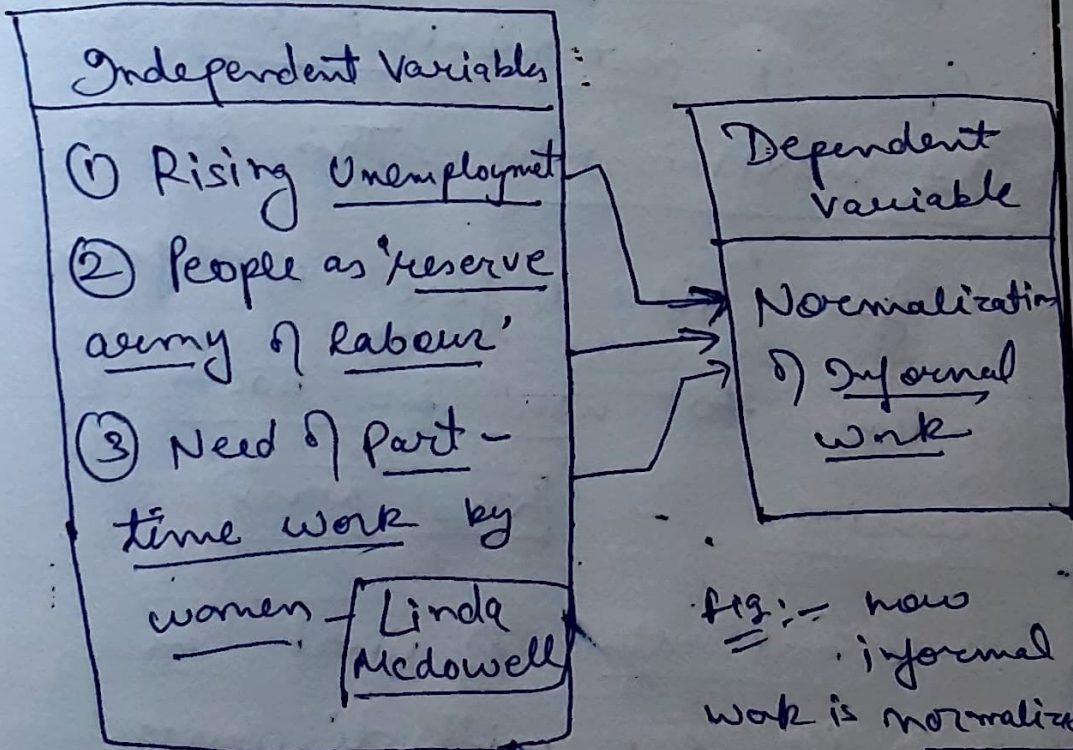 Independent Variables
① Rising Unemploymet
② People as 'reserve
army of labour'
③ Need of Part-
time work by
women - Linda
Mcdowell
Dependent
variable
Normalization
of Informal
work
fig:- how
informal
work is normalize